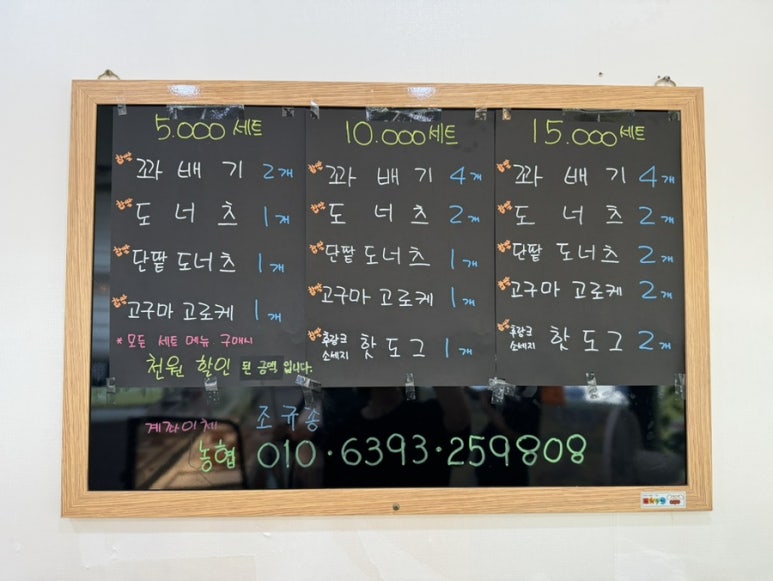 5.000 세트
찹쌀 꽈 배 기 2개
찹쌀 도 너 츠 1개
찹쌀 단팥 도너츠 1개
찹쌀 고구마 고로케 1개
* 모든 세트 메뉴 구매시
천원 할인 된 금액 입니다.
10.000 세트
찹쌀 꽈 배 기 4개
찹쌀 도 너 츠 2개
찹쌀 단팥 도너츠 1개
찹쌀 고구마 고로케 1개
찹쌀 후랑크 소세지 핫도그 1개
15.000 세트
찹쌀 꽈 배 기 4개
찹쌀 도 너 츠 2개
찹쌀 단팥 도너츠 2개
찹쌀 고구마 고로케 2개
찹쌀 후랑크 소세지 핫도그 2개
계좌이체 조규송
농협 010·6393·259808